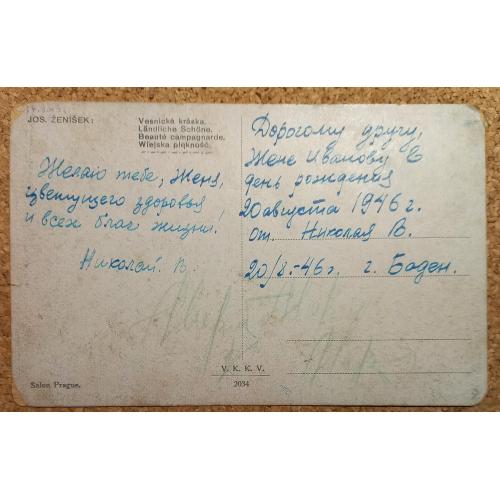 JOS. ŽENÍŠEK:
Vesnická kráska.
Ländliche Schöne.
Beauté campagnarde.
Wiejska piękność.
Желаю тебе, Женя,
цветущего здоровья
и всех благ жизни!
Николай В.
Дорогому другу,
Жене Иванову, В
день рождения
20 августа 1946 г.
от Николая В.
20/8.-46г. г. Баден.
V. K. K. V.
2034
Salon Prague.